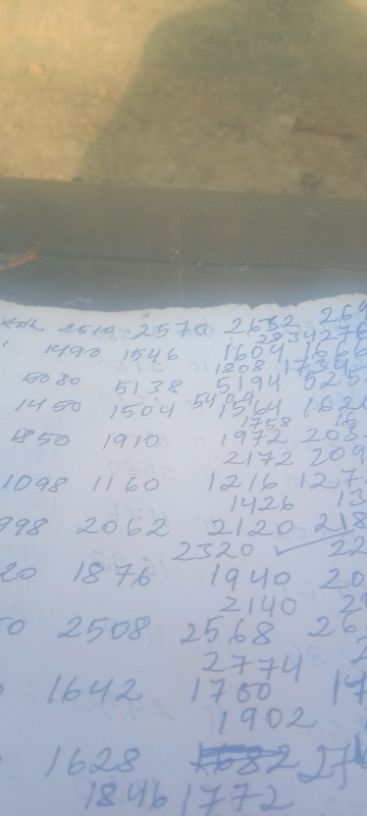 2510 2570 2632 264
2834 276
1490 1546 1604 1666
1208 1734
5080 5138 5194 525
5404
1450 1504 1564 162
1758 18
1850 1910 1972 203
2172 209
1098 1160 1216 127
1426 13
998 2062 2120 218
2320 ✓ 22
20 1876 1940 20
2140 2
50 2508 2568 26
2774 2
1642 1700 17
1902
1628
1846 1772